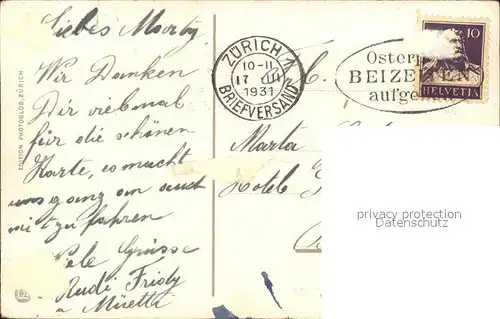 Liebes Marty
Wir Danken
Dir vielmal
für die schönen
Karte, es macht
uns ganz an auch
mit zu fahren
Viele Grüsse
Rudi Fridy
u Miretti
EDITION PHOTOGLOB, ZÜRICH
ZÜRICH 1
10-11
17 III
1931
BRIEFVERSAND
Osterp
BEIZEITEN
aufge
10
HELVETIA
Marta
Hotel
privacy protection
watermark